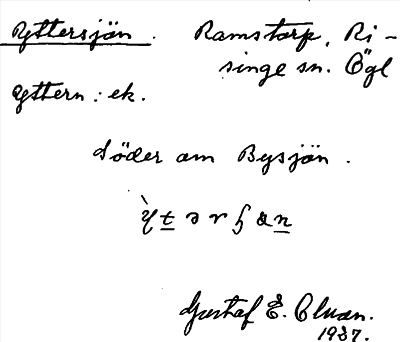 Yttersjön. Ramstorp, Ri-
singe sn. Ögl
Yttern: ek.
Söder om Bysjön.
Gustaf E. Cluan.
1937.